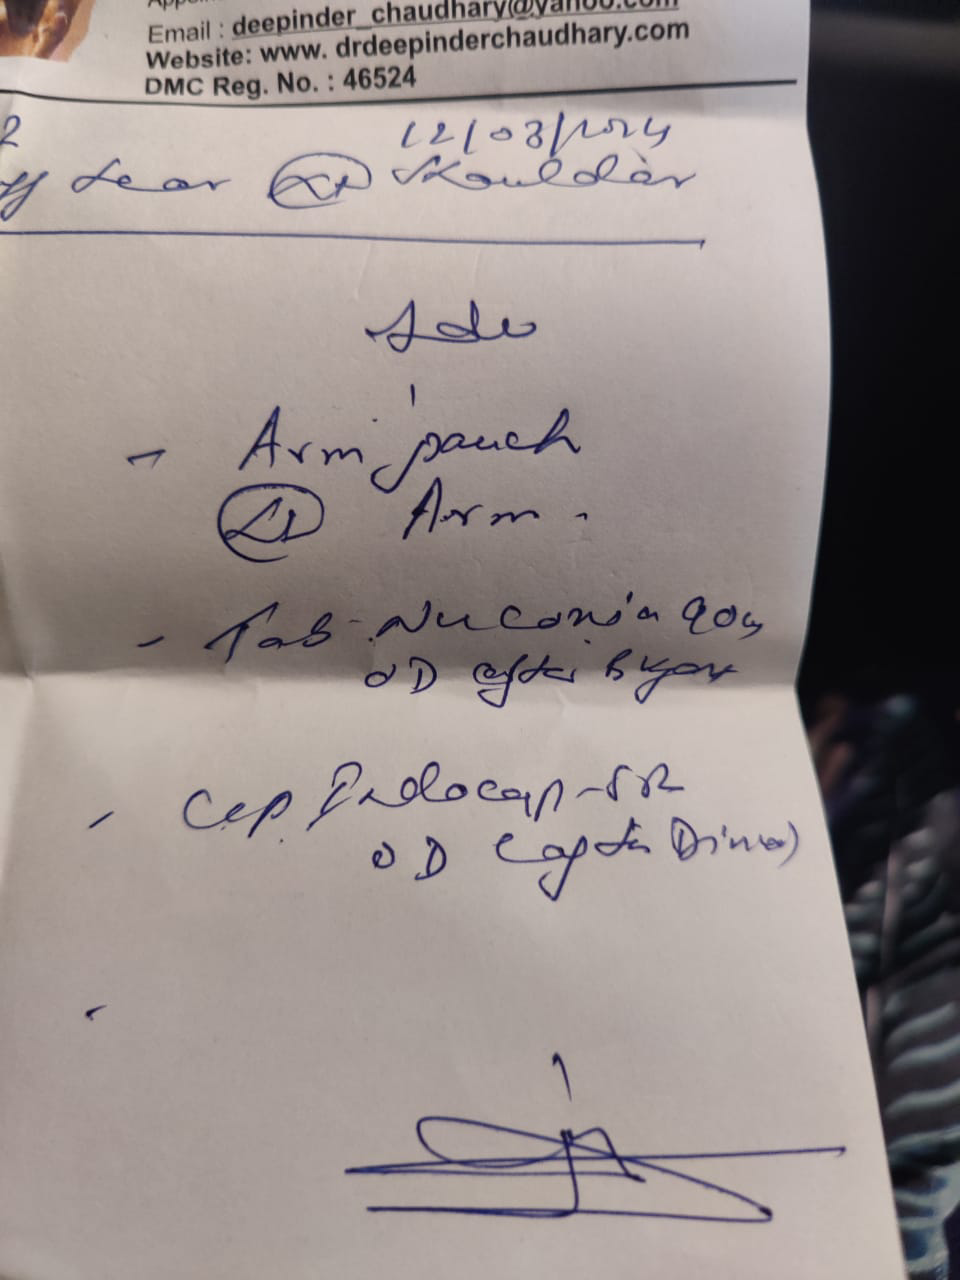 Email : deepinder_chaudhary@yahoo.com
Website: www. drdeepinderchaudhary.com
DMC Reg. No. : 46524
12/03/2024
tear Shoulder
Adv
- Arm pouch
Arm .
- Tab 90mg
OD after
- Cap Indocap-SR
OD (after Dinner)
-